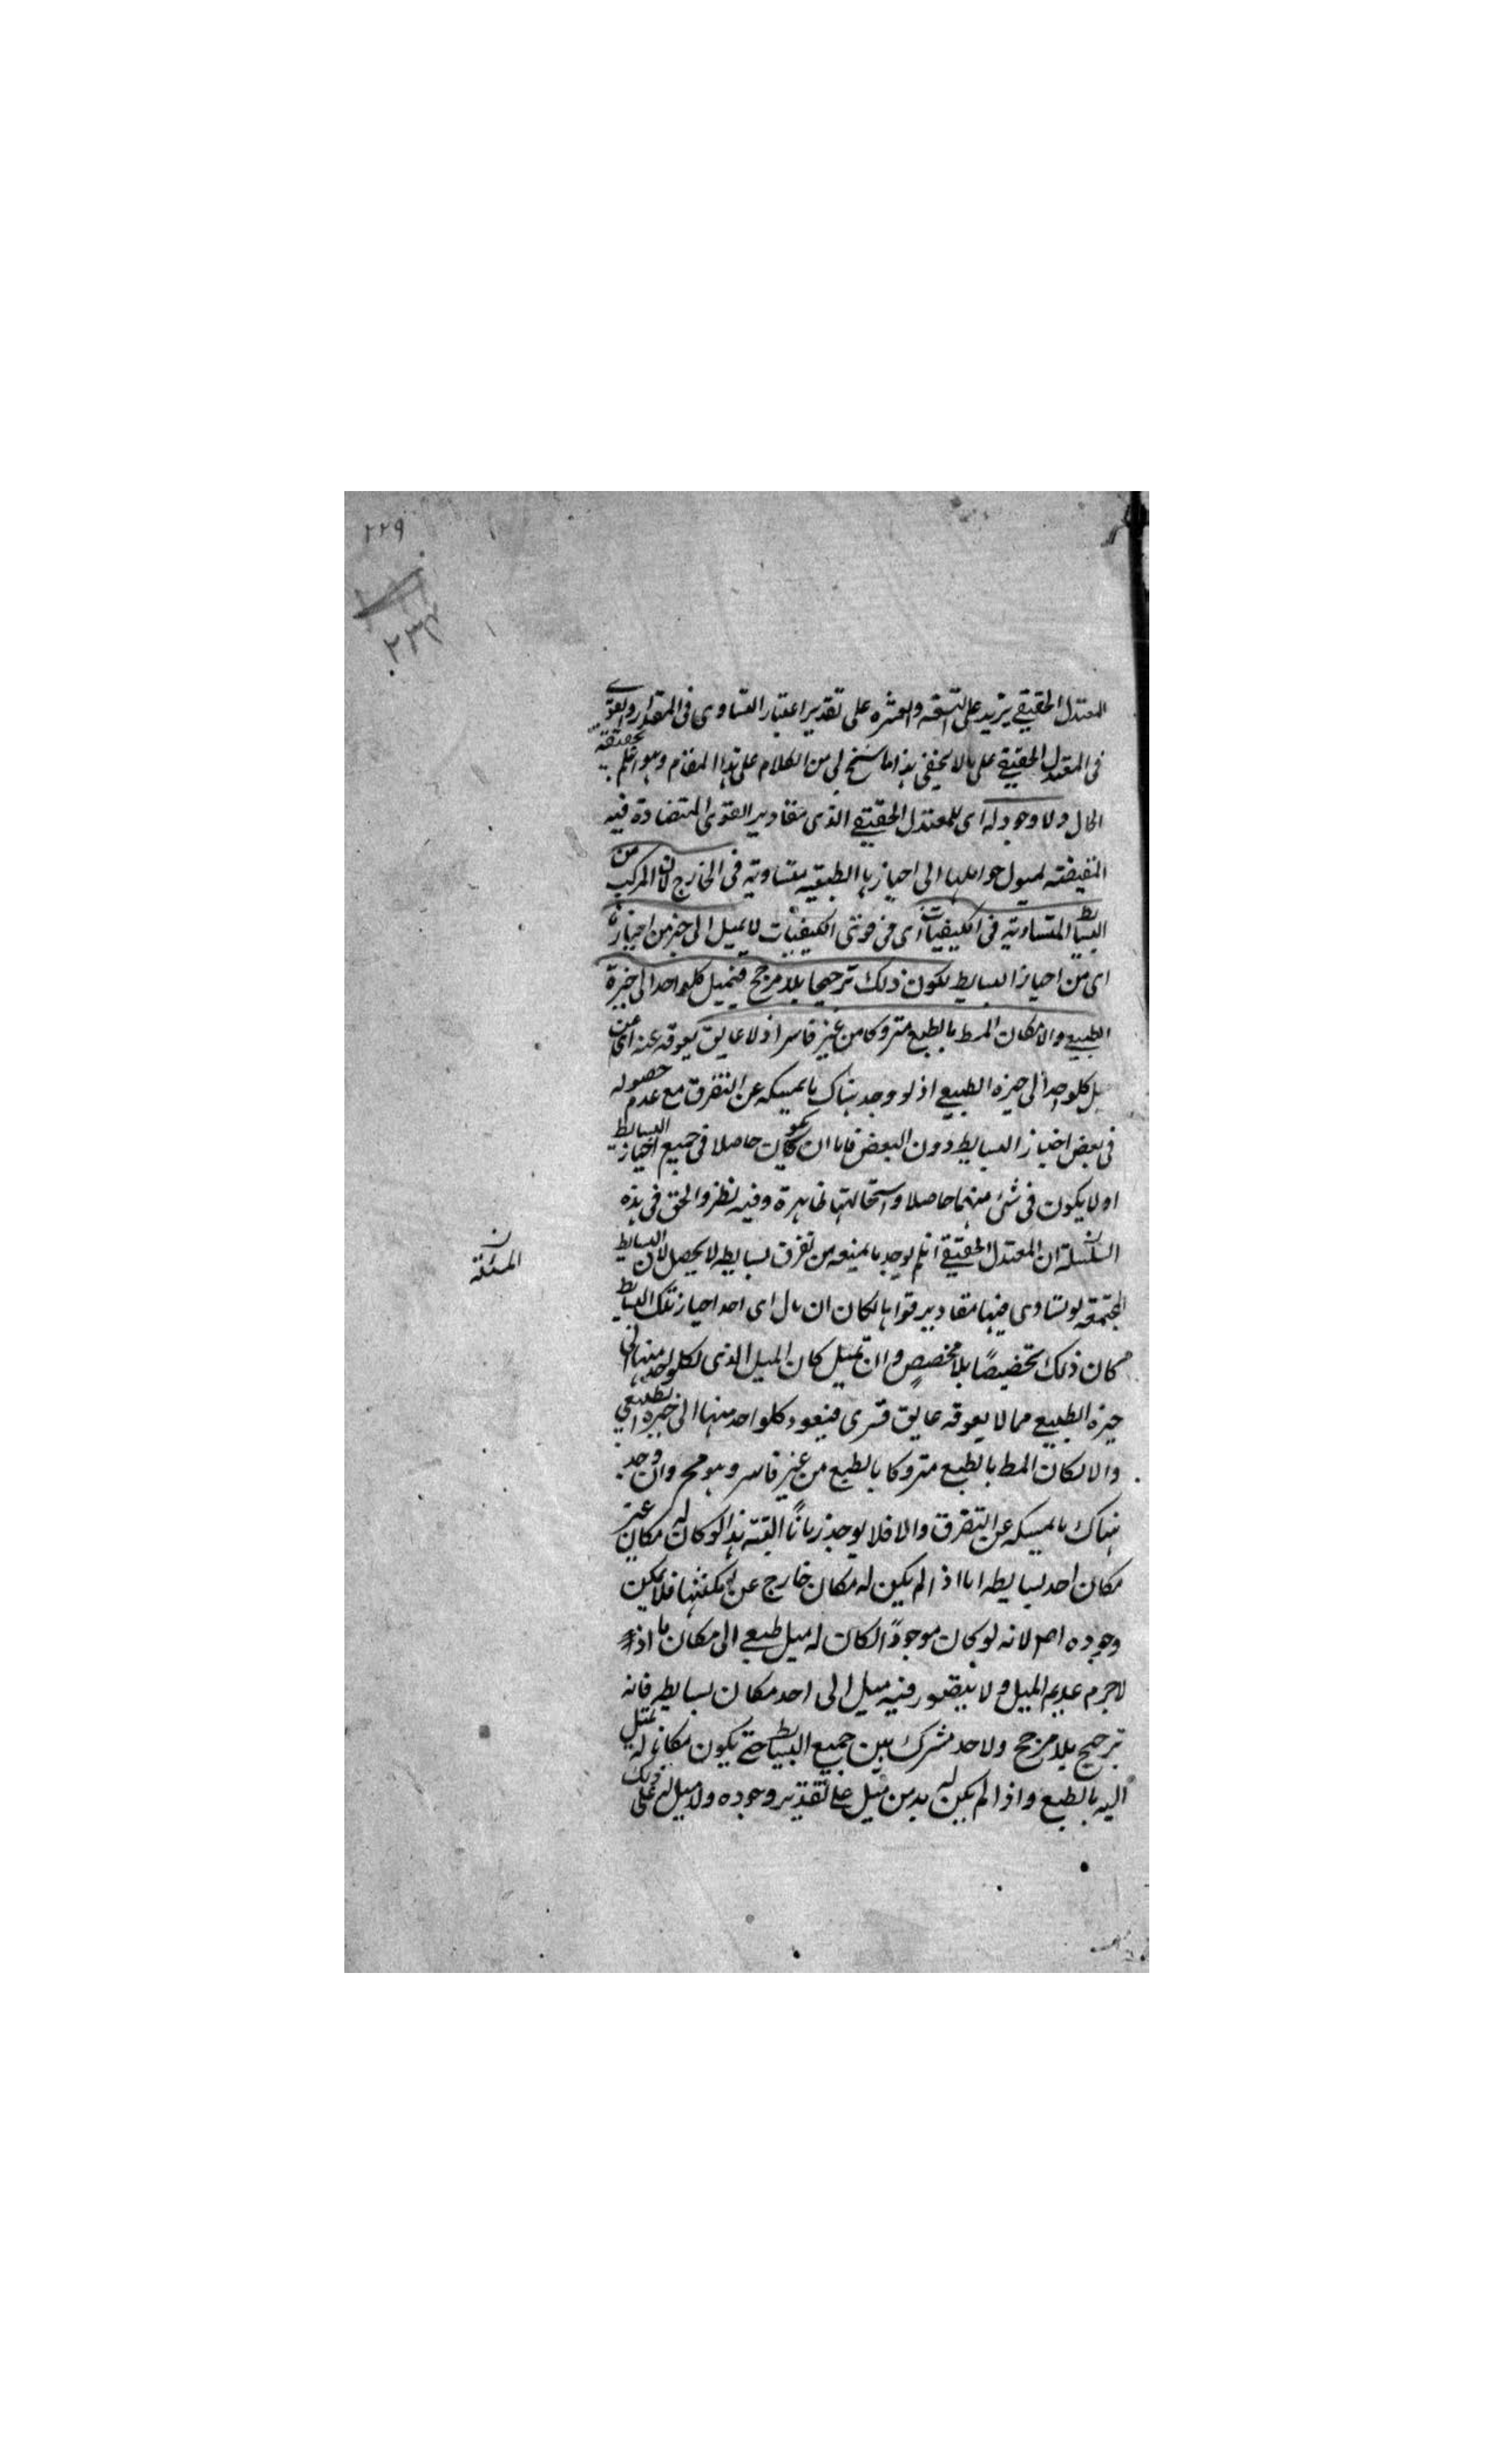 ٢٢٩
٢٣٢
المعتدل الحقيقي يزيد على التسعة والعشره على تقدير اعتبار التساوى فى المقدار والقوى
فى المعتدل الحقيقي على ما لا يخفى هذا ما سنح لى من الكلام على هذا المقام وهو اعلم بحقيقة
الحال ولا وجود له اى للمعتدل الحقيقي الذى مقادير القوى المتضادة فيه
المقتضية لميول حواملها الى احيازها الطبيعية متساوية فى الخارج لان المركب من
البسايط المتساوية فى الكيفيات اى فى قوتى الكيفيات لا يميل الى حيز من احيازها
اى من احياز البسايط لكون ذلك ترجيحا بلا مرجح فيميل كلواحد الى حيزه
الطبيعي والا لكان المط بالطبع متروكا من غير قاسر اذ لا عايق يعوقه عنه اى عن
ميل كلواحد الى حيزه الطبيعي اذ لو وجد هناك ما يمسكه عن التفرق مع عدم حصوله
فى بعض احياز البسايط دون البعض فاما ان يكون حاصلا فى جميع احياز البسايط
او لا يكون فى شئ منهما حاصلا واستحالتها ظاهرة وفيه نظر والحق فى هذه
السلسلة ان المعتدل الحقيقي ان لم يوجد ما يمنعه من تفرق بسايطه لا يحصل لان البسايط
المسئلة ن
المجتمعة لو تساوى فيها مقادير قواها لكان ان مال اى احد احياز تلك البسايط
كان ذلك تخصيصًا بلا مخصصٍ وان لم يميل كان الميل الذى لكلواحد منها الى
حيزه الطبيعي مما لا يعوقه عايق قسرى فيعود كلواحد منها الى حيزه الطبيعي
والا لكان المط بالطبع متروكا بالطبع من غير قاسر وهو مح وان وجد
هناك ما يمسكه عن التفرق والا فلا يوجد زمانًا البتة هذا لو كان له مكان غير
مكان احد بسايطه اما اذا لم يكن له مكان خارج عن امكنتها فلا يمكن
وجوده اصلا لانه لو كان موجودًا لكان له ميل طبيعي الى مكان ما اذ
لا جرم عديم الميل ولا يتصور فيه ميل الى احد مكان بسايطه فانه
ترجيح بلا مرجح ولا حد مشترك بين جميع البسايط حتى يكون مكانا له يميل
اليه بالطبع واذا لم يكن له بد من ميل على تقدير وجوده ولا ميل له على ذلك